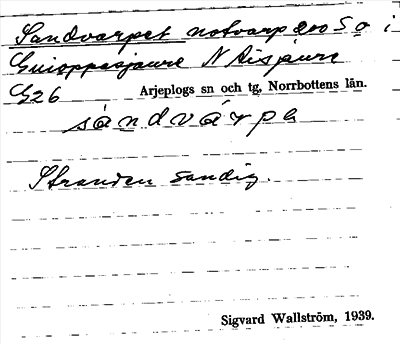 Sandvarpet notvarp 200 S o i
Guioppasjaure N Aisjaure
G26
Arjeplogs sn och tg, Norrbottens län.
sándvárpe
Stranden sandig.
Sigvard Wallström, 1939.